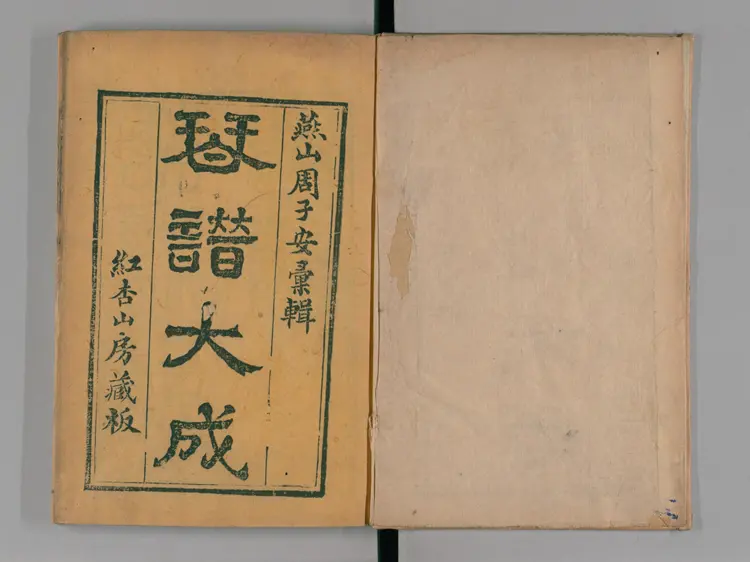 燕山周子安彙輯
琴譜大成
紅杏山房藏板